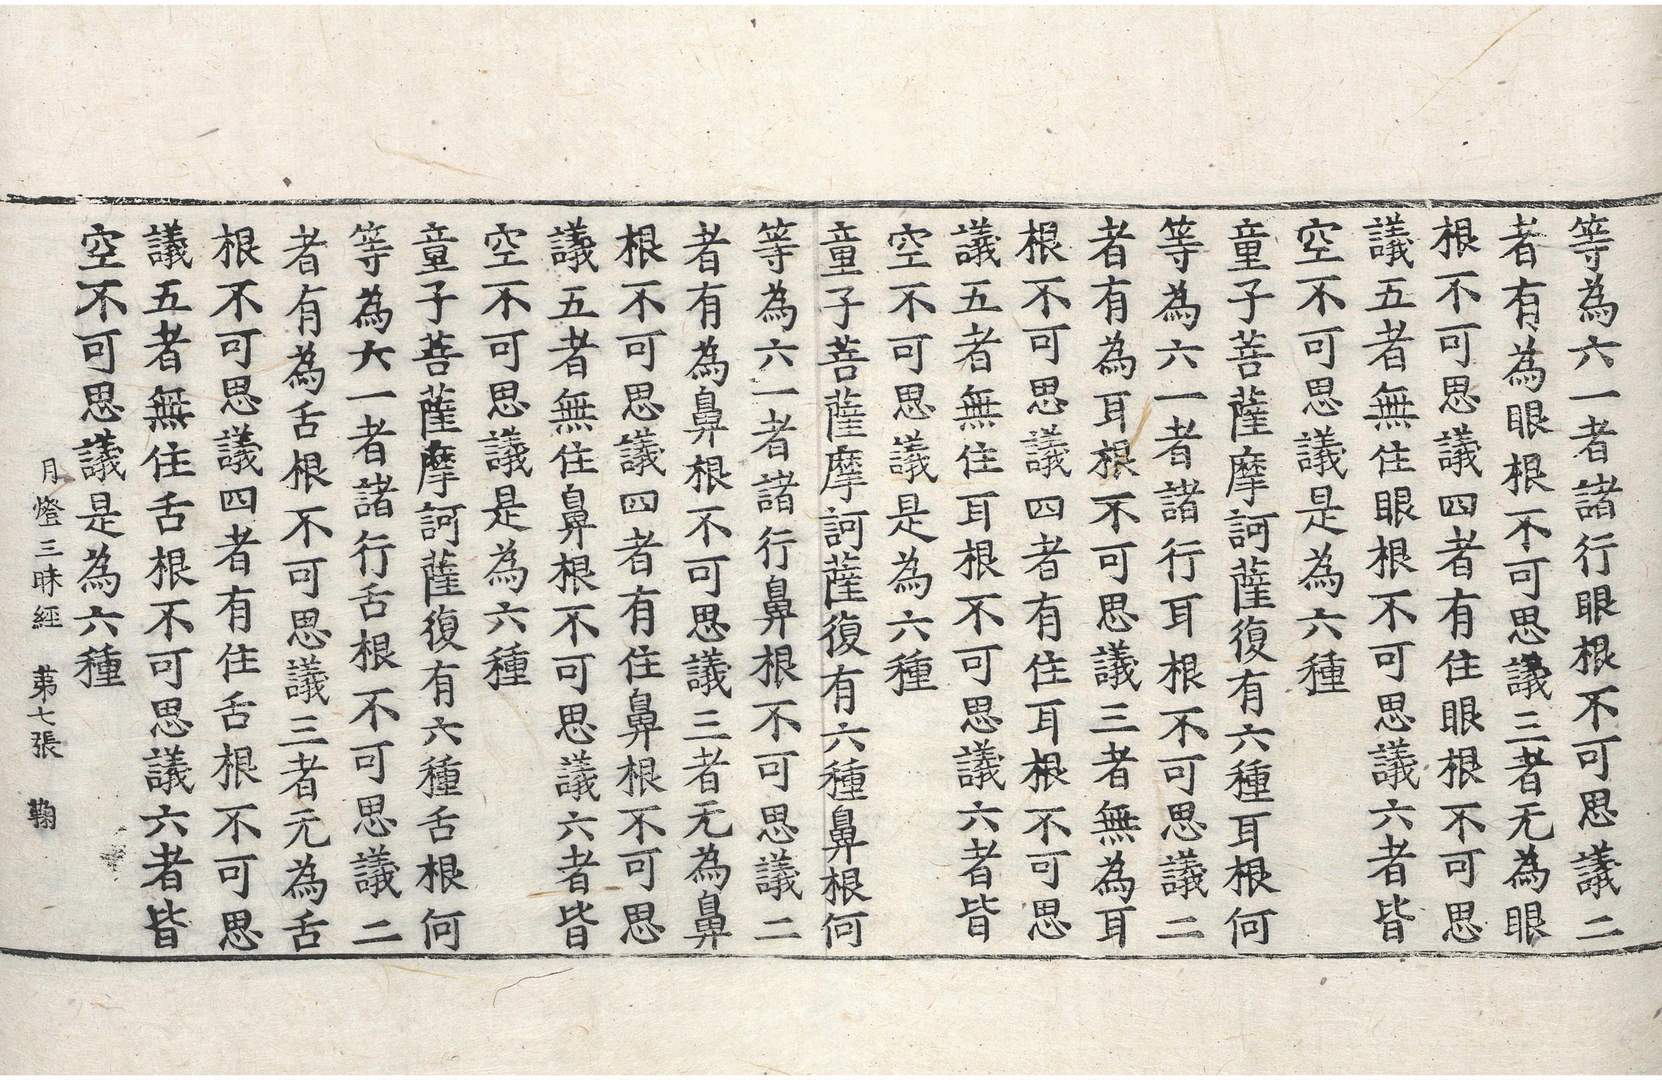 等為六一者諸行眼根不可思議二
者有為眼根不可思議三者无為眼
根不可思議四者有住眼根不可思
議五者無住眼根不可思議六者皆
空不可思議是為六種
童子菩薩摩訶薩復有六種耳根何
等為六一者諸行耳根不可思議二
者有為耳根不可思議三者無為耳
根不可思議四者有住耳根不可思
議五者無住耳根不可思議六者皆
空不可思議是為六種
童子菩薩摩訶薩復有六種鼻根何
等為六一者諸行鼻根不可思議二
者有為鼻根不可思議三者无為鼻
根不可思議四者有住鼻根不可思
議五者無住鼻根不可思議六者皆
空不可思議是為六種
童子菩薩摩訶薩復有六種舌根何
等為六一者諸行舌根不可思議二
者有為舌根不可思議三者无為舌
根不可思議四者有住舌根不可思
議五者無住舌根不可思議六者皆
空不可思議是為六種
月燈三昧經 苐七張 鞠